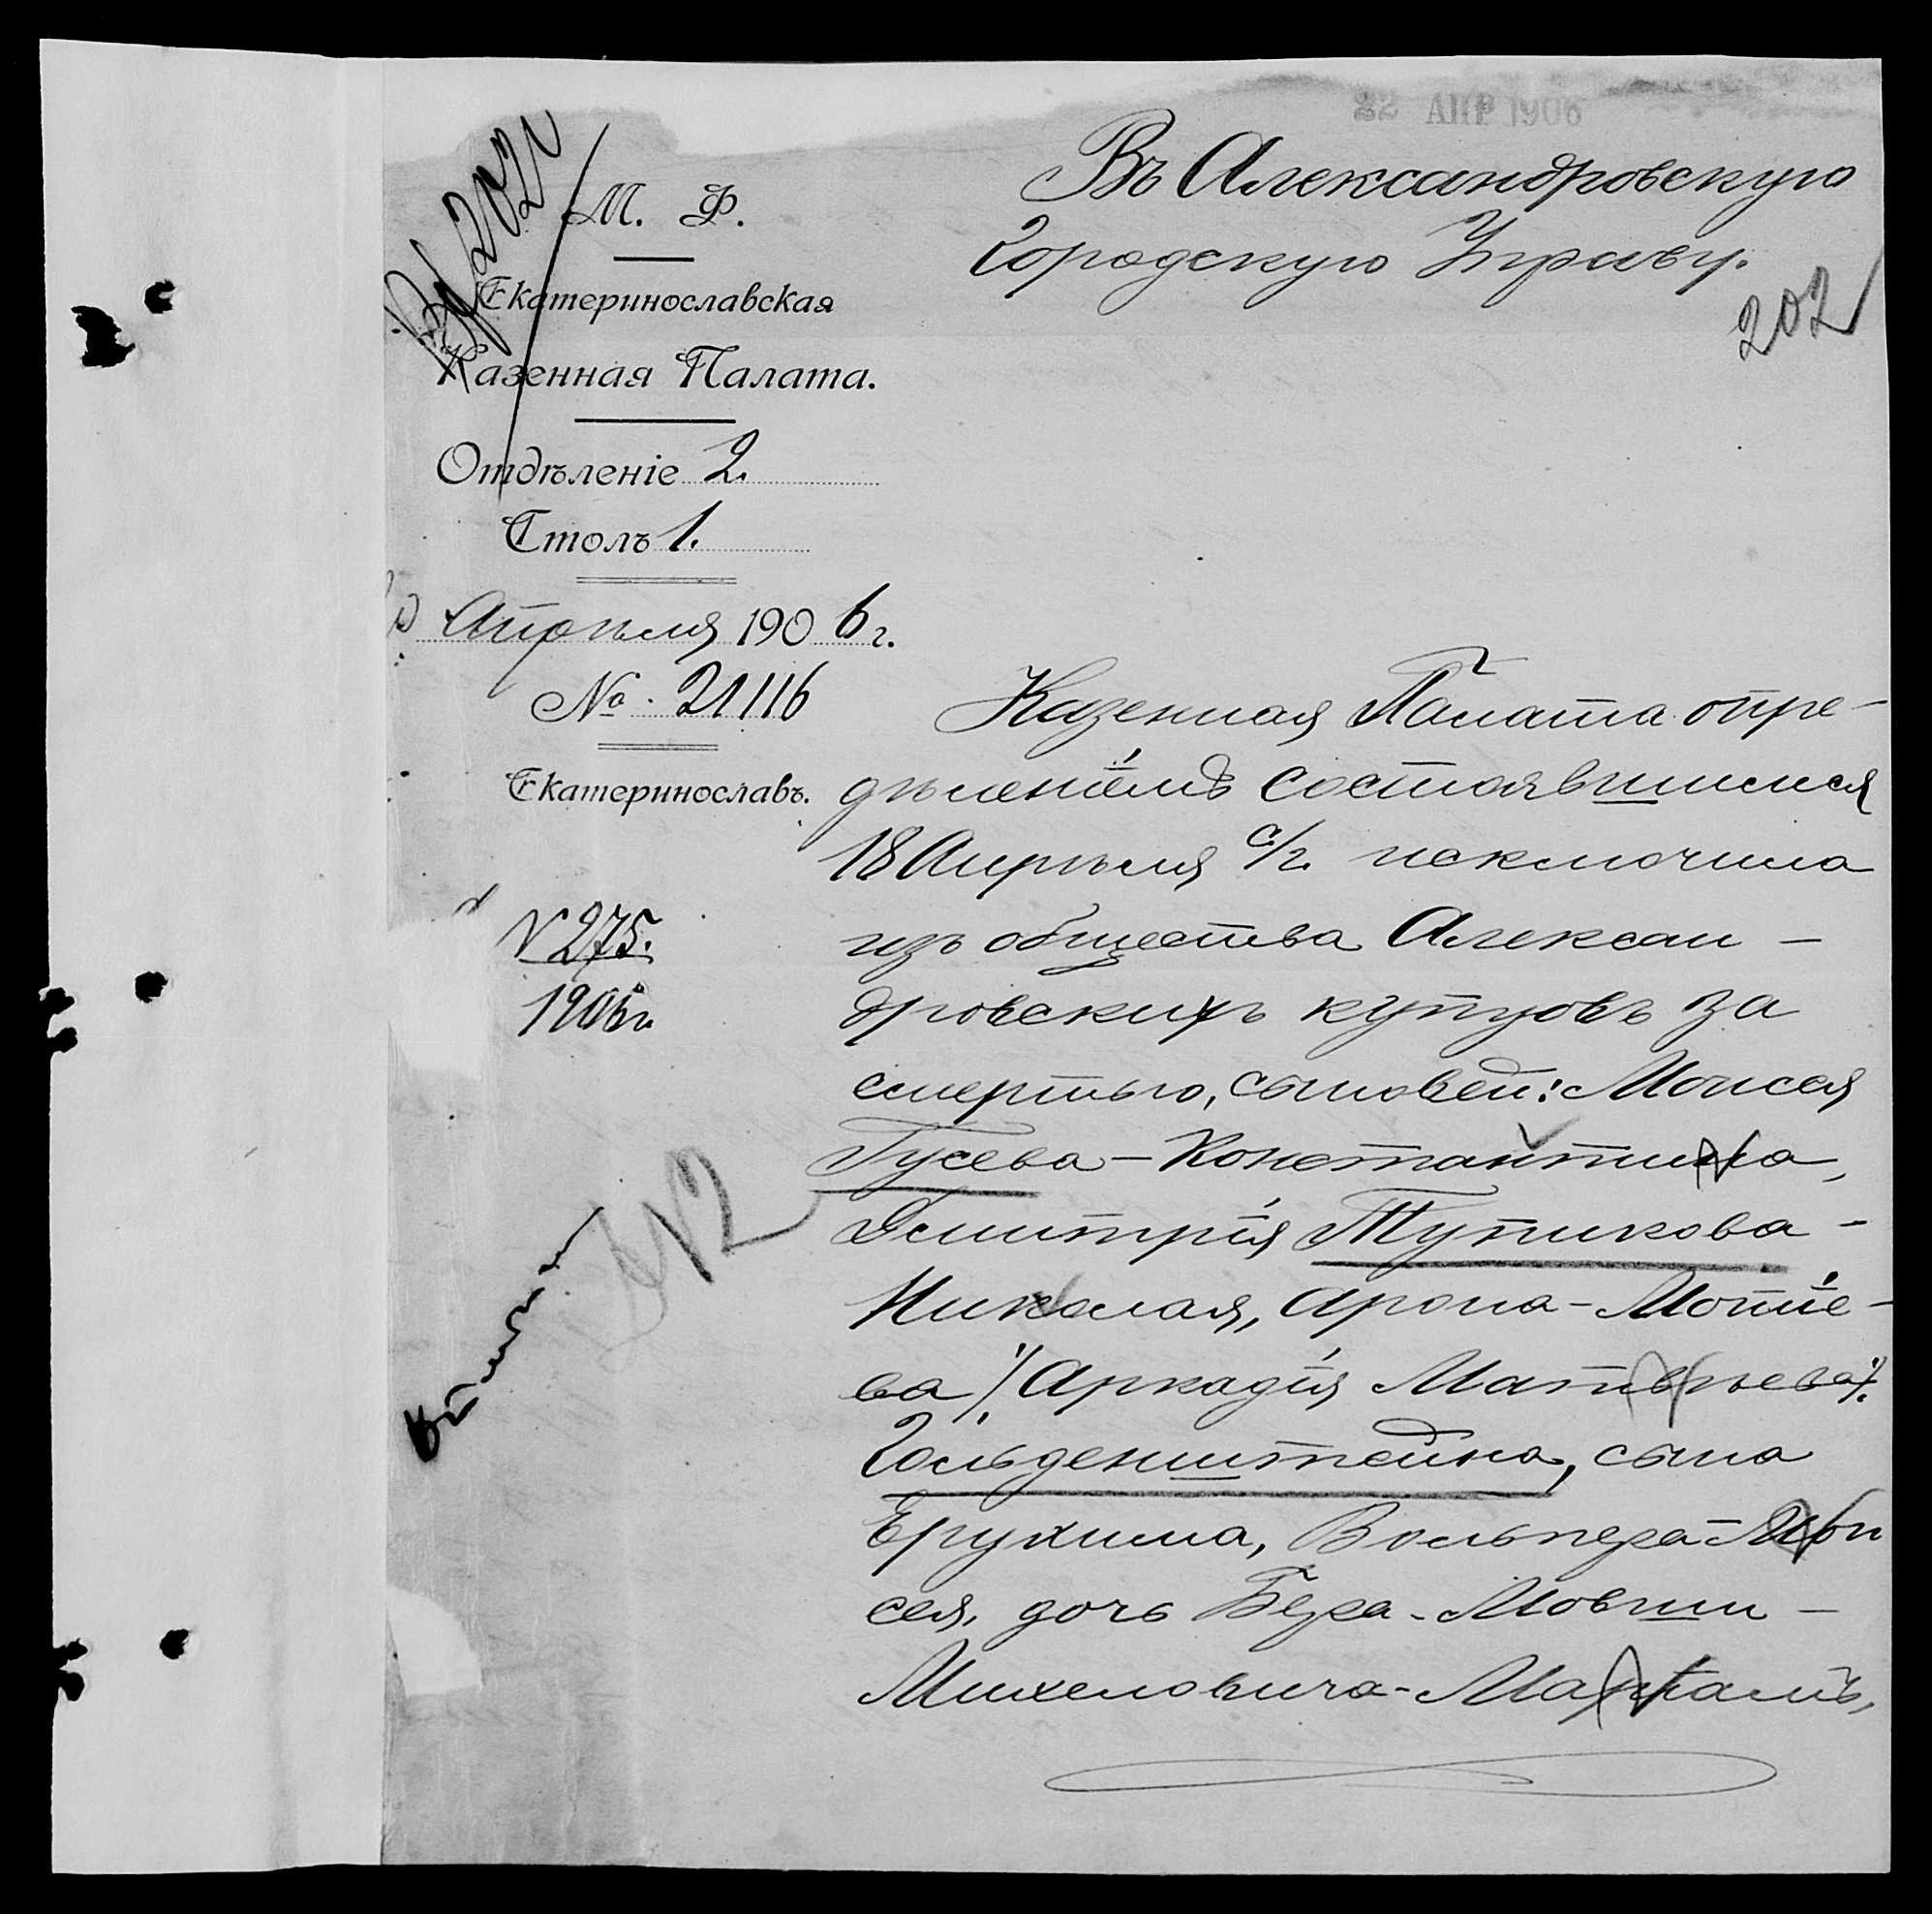 22 АПР 1906
Въ Александровскую
Городскую Управу.
202
М. Ф.
Екатеринославская
Казенная Палата.
Отдѣленіе 2.
Столъ 1.
Апрѣля 1906 г.
№ 21116
Екатеринославъ.
N 275.
1906 г.
Казенная Палата опре-
дѣленіемъ состоявшимся
18 Апрѣля с/г. исключила
изъ общества Алексан-
дровскихъ купцовъ за
смертью, сыновей: Моисея
Гусева - Константина,
Дмитрія Тупикова -
Николая, Арона - Мотіе-
ва /Аркадія Матвѣева/.
Гольденштейна, сына
Ерухима, Вольпера - Мои
сея, дочь Бера - Мовши -
Михеловича -